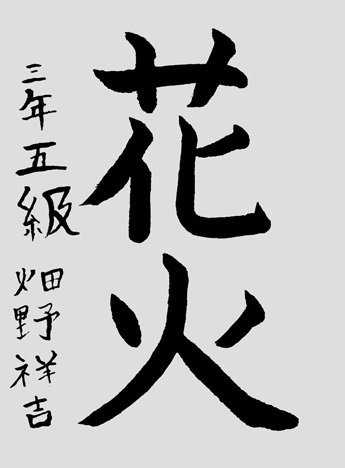 花火
三年五級 畑野祥吉